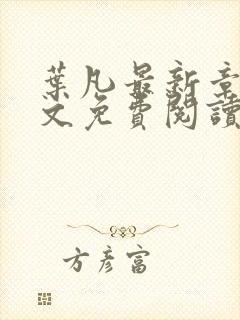 葉凡最新章
文免費閱讀
方彥富